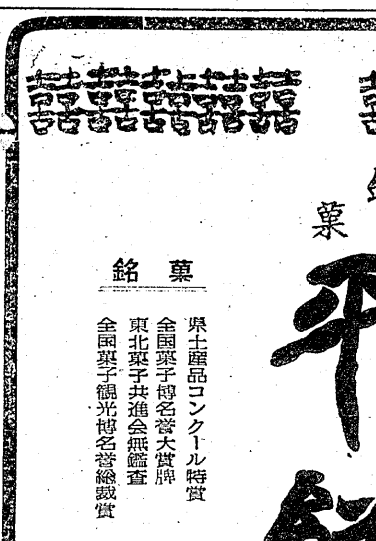 囍囍囍囍囍
菓
平
銘菓
県土産品コンクール特賞
全国菓子博名誉大賞牌
東北菓子共進会無鑑査
全国菓子観光博名誉総裁賞